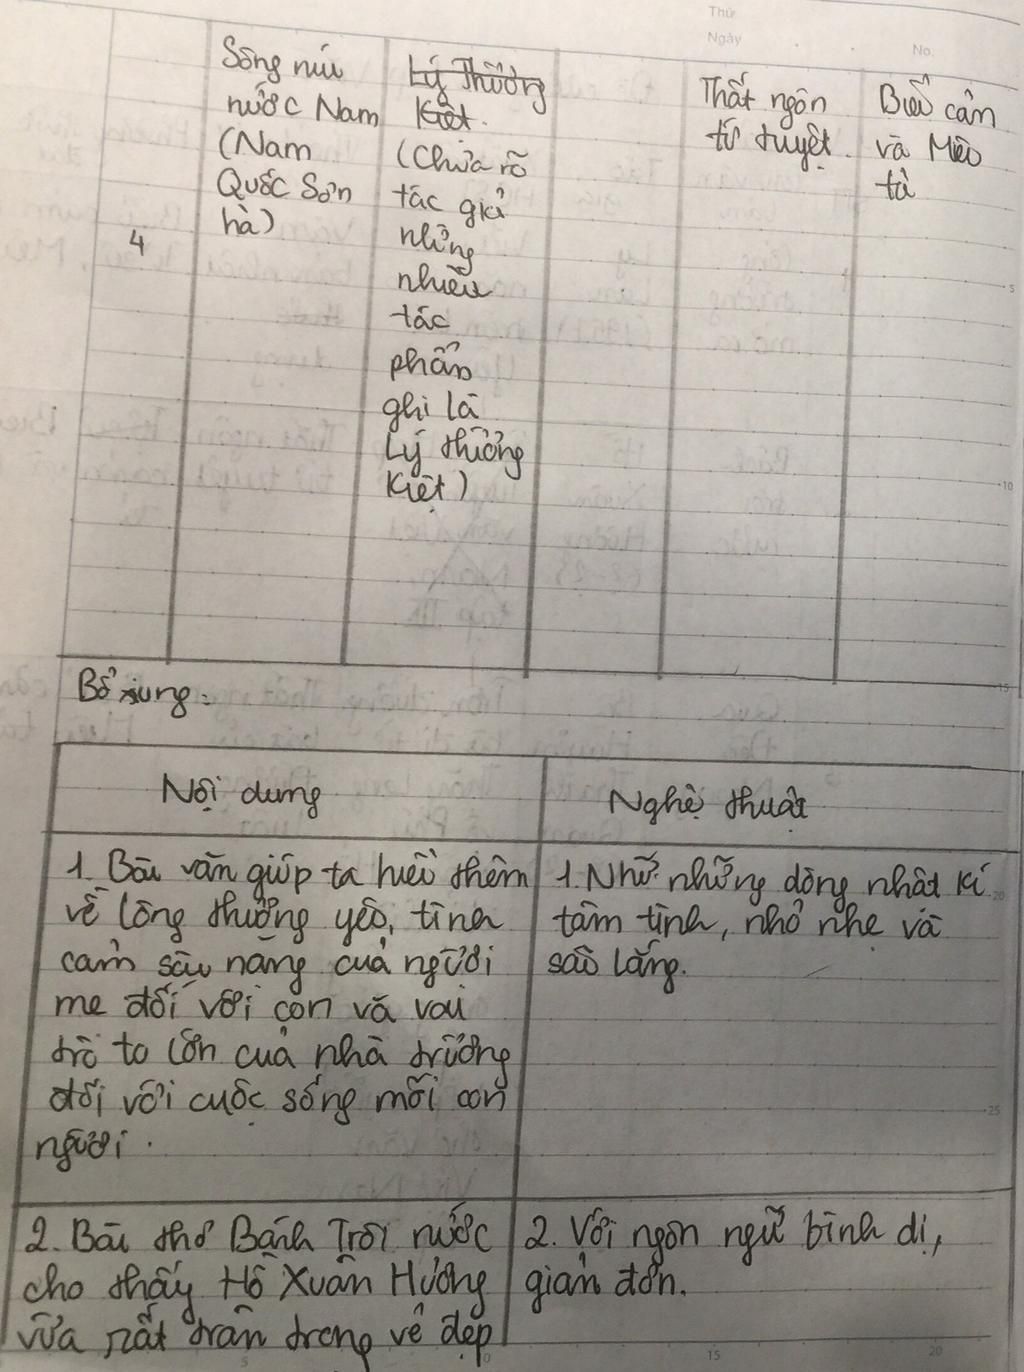 Thứ
Ngày
No.
4
Sông núi
nước Nam
(Nam
Quốc Sơn
hà)
Lý Thường
Kiệt.
(Chưa rõ
tác giả
nhưng
nhiều
tác
phẩm
ghi là
Lý thường
Kiệt)
Thất ngôn
tứ tuyệt.
Biểu cảm
và Miêu
tả
5
10
15
Bổ xung:
Nội dung
Nghệ thuật
1. Bài văn giúp ta hiểu thêm
về lòng thương yêu, tình
cảm sâu nặng của người
mẹ đối với con và vai
trò to lớn của nhà trường
đối với cuộc sống mỗi con
người.
1. Như những dòng nhật kí
tâm tình, nhỏ nhẹ và
sâu lắng.
20
25
2. Bài thơ Bánh Trôi nước
cho thấy Hồ Xuân Hương
vừa rất trân trọng vẻ đẹp
2. Với ngôn ngữ bình dị,
giản đơn.
5
10
15
20